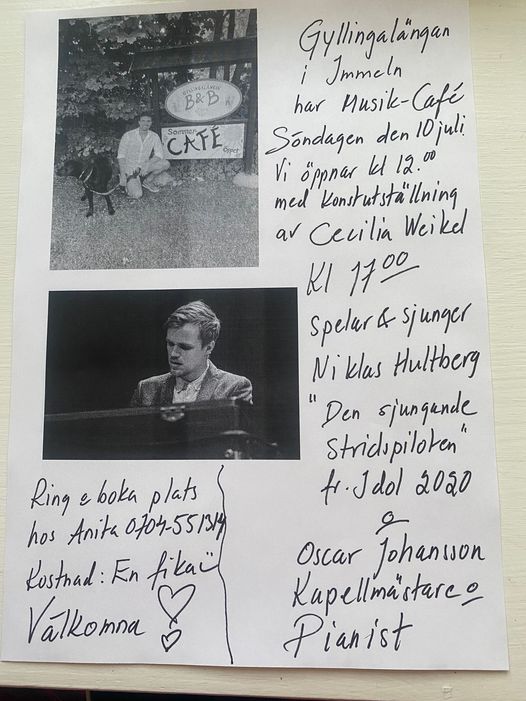 GYLLINGALÄNGAN
B&B
Sommar
CAFÉ
Öppet
Gyllingalängan
i Immeln
har Musik-Café
Söndagen den 10 juli
Vi öppnar kl 12.00
med konstutställning
av Cecilia Weikel
Kl 17 00
spelar & sjunger
Niklas Hultberg
"Den sjungande
stridspiloten"
fr. Idol 2020
o
Oscar Johansson
Kapellmästare o
Pianist
Ring o boka plats
hos Anita 0704-551314
Kostnad: En fika
Välkomna